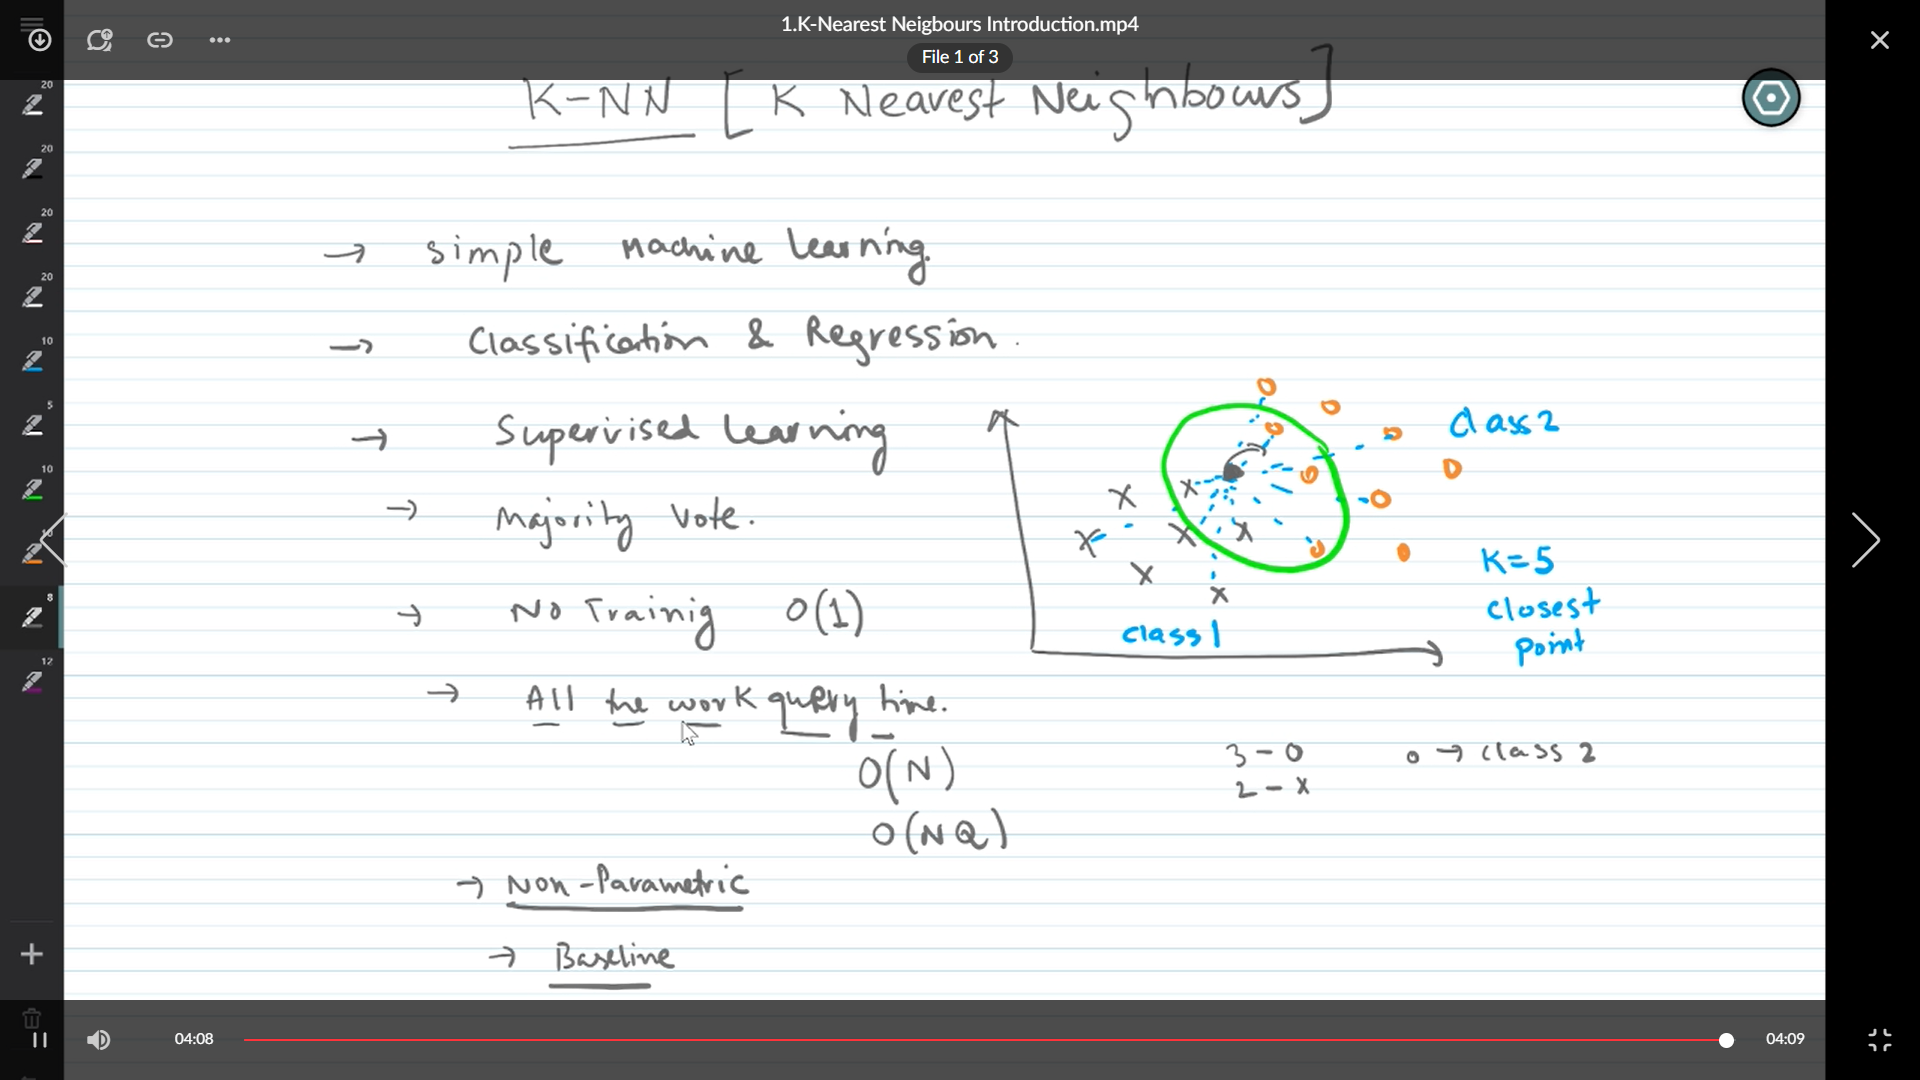 1.K-Nearest Neigbours Introduction.mp4
File 1 of 3
K-NN [K Nearest Neighbours]
20
20
20
20
10
5
10
8
12
→ Simple Machine Learning.
→ Classification & Regression.
→ Supervised Learning
→ Majority Vote.
→ No Trainig O(1)
→ All the work query time.
O(N)
O(NQ)
→ Non-Parametric
→ Baseline
Class 2
K=5
closest
point
class 1
3 - O
2 - X
O → class 2
04:08
04:09